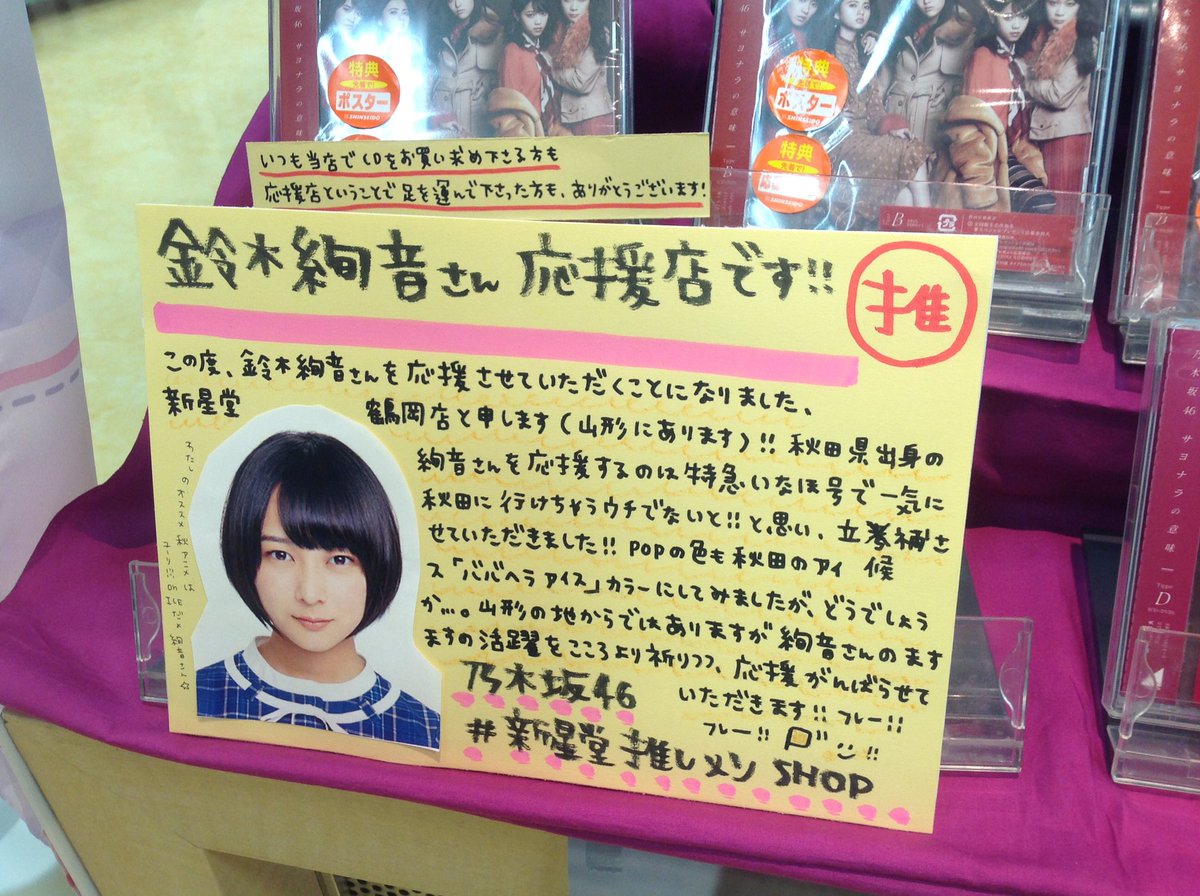 坂46 サヨナラの意味
特典
先着で!
ポスター
SHINSEIDO
特典
先着で!
ポスター
SHINSEIDO
特典
先着で!
いつも当店でCDをお買い求め下さる方も
応援店ということで足を運んで下さった方も、ありがとうございます!
鈴木絢音さん 応援店です!!
推
この度、鈴木絢音さんを応援させていただくことになりました、
新星堂 鶴岡店と申します(山形にあります)!! 秋田県出身の
絢音さんを応援するのは特急いなほ号で一気に
秋田に行けちゃうウチでないと!!と思い、立候補さ
せていただきました!! POPの色も秋田のアイ
ス「ババヘラアイス」カラーにしてみましたが、どうでしょう
か…。山形の地からではありますが絢音さんのます
ますの活躍をこころより祈りつつ、応援がんばらせて
いただきます!! フレー!!
フレー!!
わたしのオススメ秋アニメは
ユーリ!!! on ICEだよ 絢音さん☆
乃木坂46
#新星堂推しメンSHOP
B
木坂46 サヨナラの意味 Type B
木坂46 サヨナラの意味 Type D